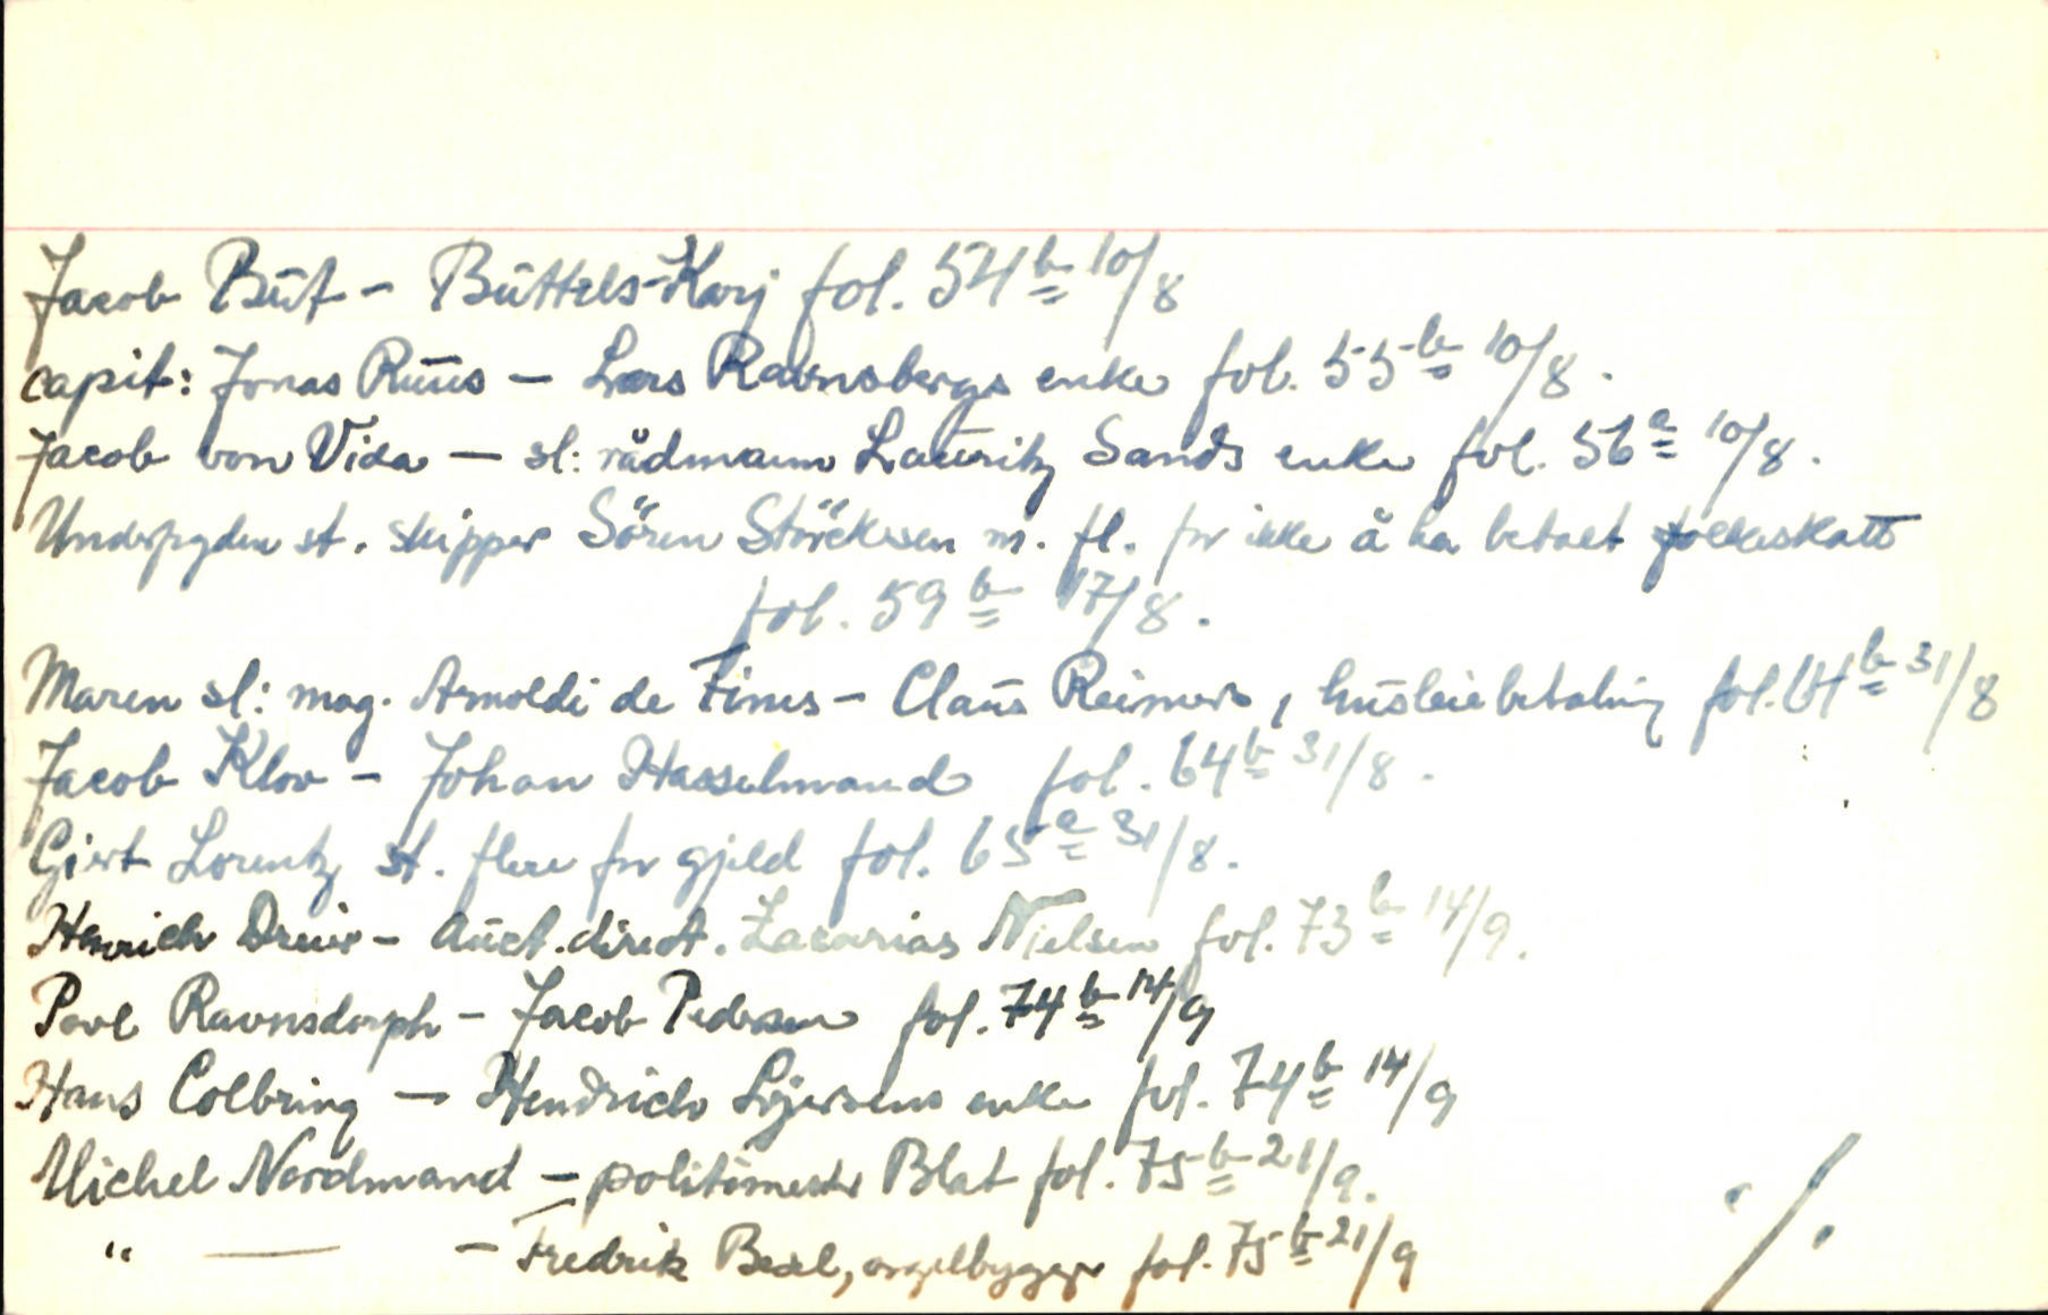 Jacob Büt - Büttels-Karj fol. 54b 10/8
capit: Jonas Ruus - Lars Ravnsbergs enke fol. 55b 10/8.
Jacob von Vida - sl: rådmann Lauritz Sands enke fol. 56a 10/8.
st. skipper Sören Störckesen m. fl. for ikke å ha betalt folkeskatt
fol. 59b 17/8.
Maren sl: mag. Arnoldi de Fines - Claus Reimers, husleiebetaling fol. 64b 31/8
Jacob Klov - Johan Hasselmand fol. 64b 31/8.
Giert Lorentz st. flere for gjeld fol. 65a 31/8.
Henrich Dreier - Auct. direct. Zacarias Nielsen fol. 73b 14/9.
Povl Ravnsdorph - Jacob Pedersen fol. 74b 14/9
Hans Colbring - Hendrich enke fol. 74b 14/9
Michel Nordmand - politimester Blat fol. 75b 21/9.
" — - Fredrik orgelbygger fol. 75b 21/9
./.